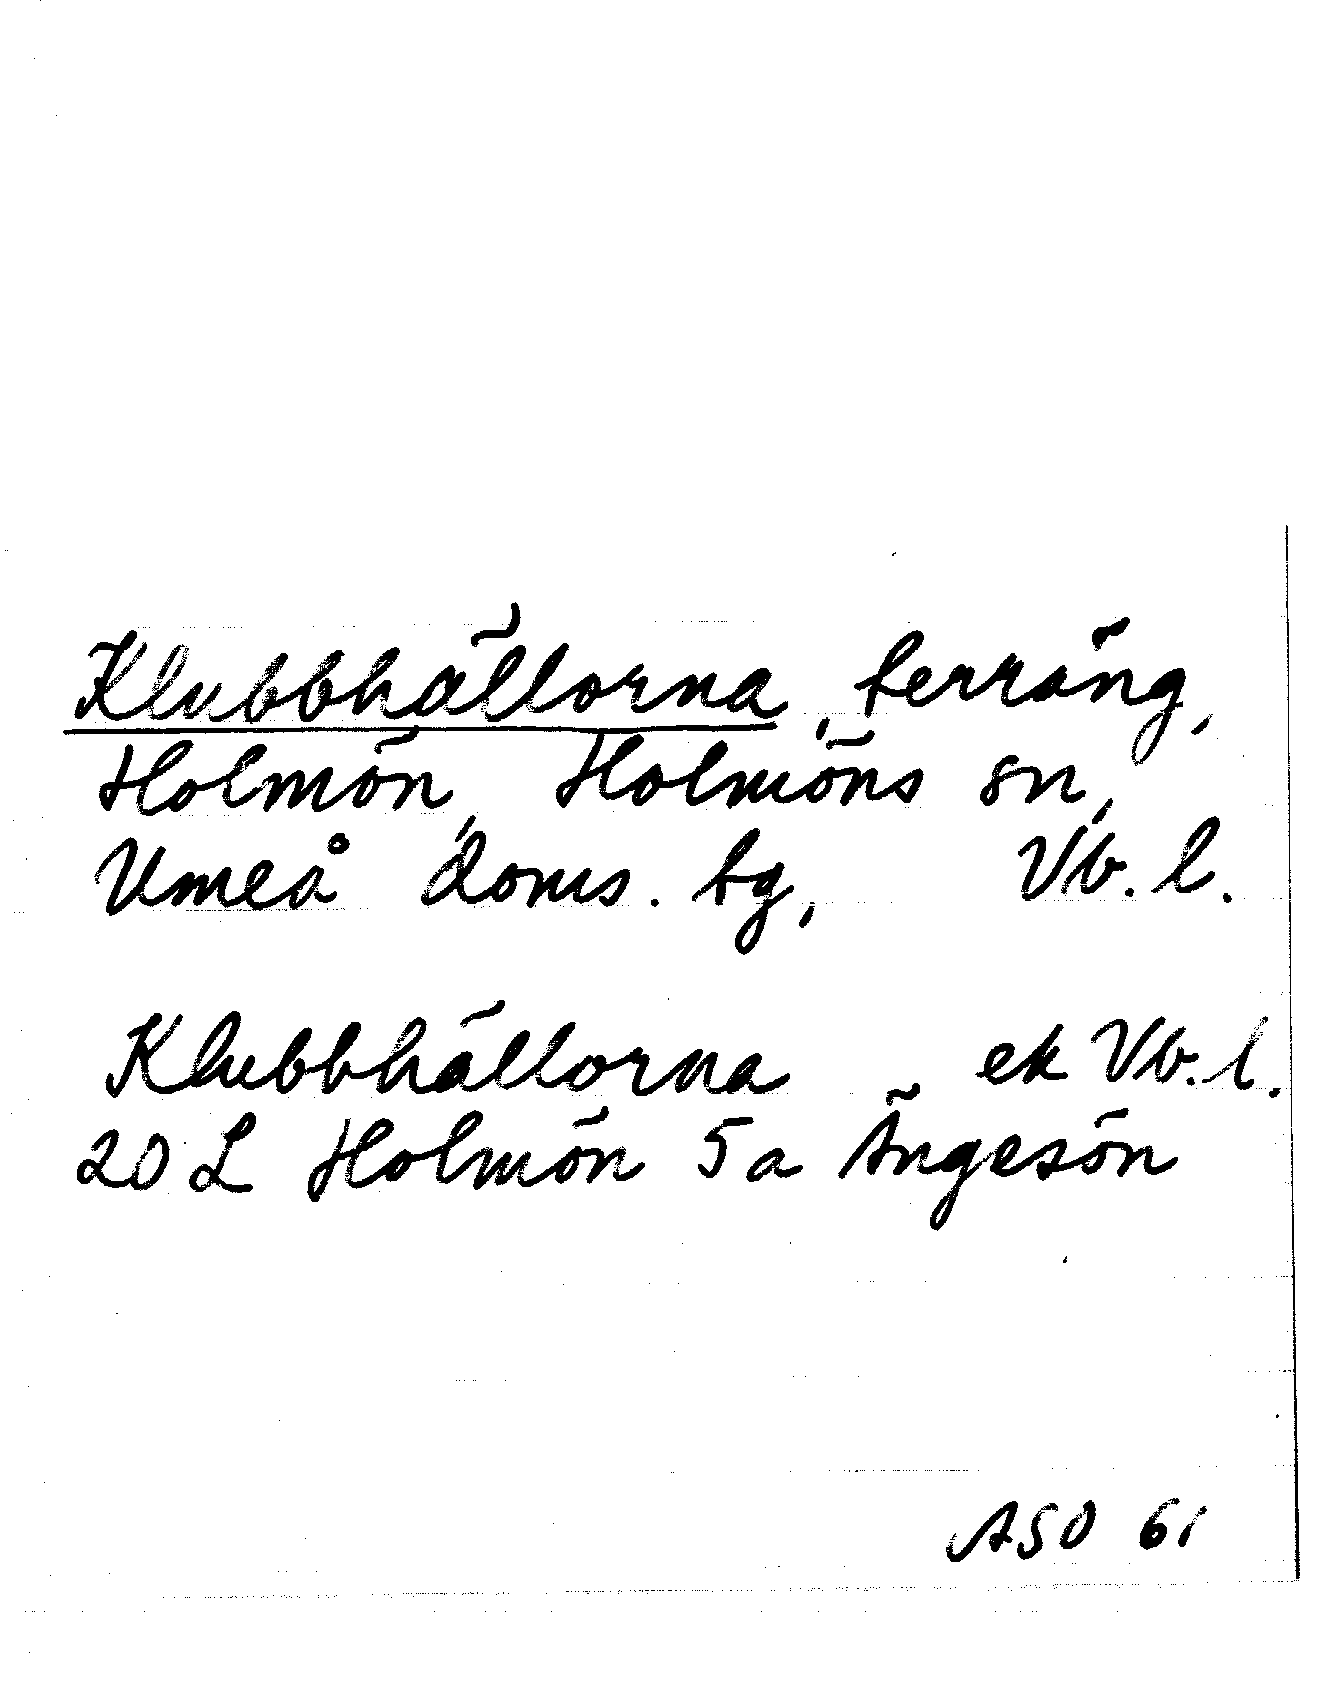 Klubbhällorna, terräng,
Holmön, Holmöns sn,
Umeå doms. tg, Vb. l.
Klubbhällorna ek Vb. l.
20 L Holmön 5a Ängesön
ASO 61